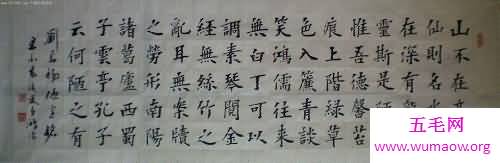 山不在
仙則名
在深有
靈斯是
惟吾德馨苔
痕上階綠草
色入簾青談
笑鴻儒往來
無白丁可以
調素琴閱金
經無絲竹之
亂耳無案牘
之勞形南陽
諸葛廬西蜀
子雲亭孔子
云何陋之有
劉禹錫陋室銘
五毛网